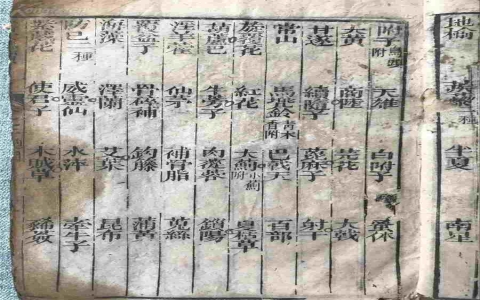 半夏 南星
附子 天雄 白附子 蚤休
大黃 商陸 芫花 大戟
甘遂 續隨子 蓖麻子 射干
常山 馬兜鈴 青木香附 巴戟天 百部
旋覆花 紅花 大薊 小薊附 夏枯草
葫蘆巴 牛蒡子 肉蓯蓉 鎖陽
淫羊藿 仙茅 補骨脂 菟絲
覆盆子 骨碎補 鉤藤 蒲黃
海藻 澤蘭 艾葉 昆布
防己 二種 威靈仙 水萍 牽牛子
紫葳花 使君子 木賊草 豨薟